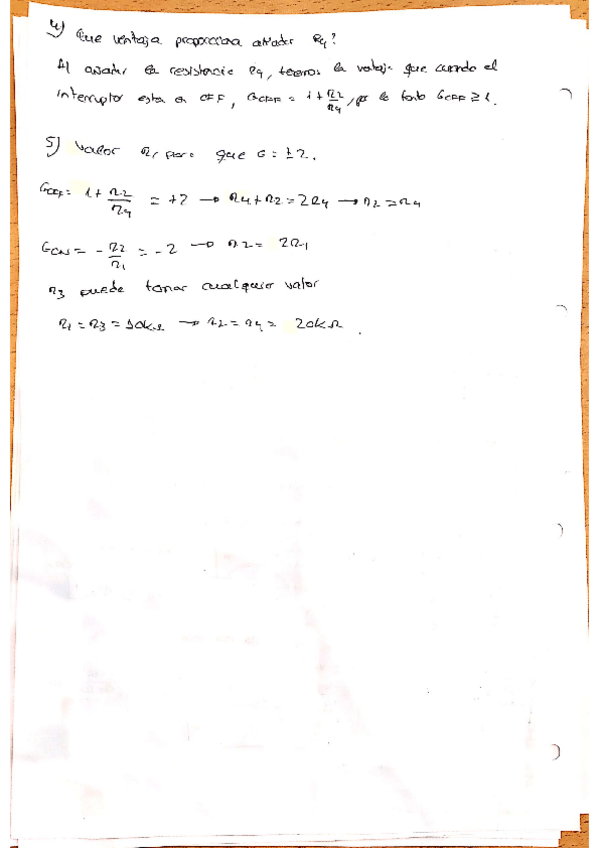 4) Que ventaja proporciona añadir R4?
Al añadir la resistencia R4, tenemos la ventaja que cuando el
interruptor esta en OFF, GOFF = 1+R2/R4, por lo tanto GOFF ≥ 1.
5) Valor R, para que G = ±2.
GOFF = 1 + R2/R4 = +2 → R4+R2 = 2R4 → R2 = R4
GON = - R2/R1 = -2 → R2 = 2R1
R3 puede tomar cualquier valor
R1 = R3 = 10kΩ → R2 = R4 = 20kΩ.